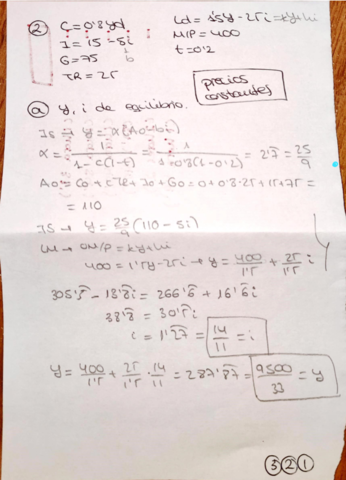 ② C = 0'8yd
I = 15 - 5i
G = 75 b
TR = 25
Ld = 1'5y - 25i = ky+hi
M/P = 400
t = 0'2
precios constantes
ⓐ y, i de equilibrio.
IS → y = α(A0 - bi)
α = 1/(1-c(1-t)) = 1/(1-0'8(1-0'2)) = 2'7̂ = 25/9
A0 = C0 + cTR + I0 + G0 = 0 + 0'8·25 + 15 + 75 =
= 110
IS → y = 25/9 (110 - 5i)
LM → M/P = ky + hi
400 = 1'5y - 25i → y = 400/1'5 + 25/1'5 i
305'5̂ - 13'8̂i = 266'6̂ + 16'6̂i
38'8̂ = 30'5i
i = 1'27̂ = 14/11 = i
y = 400/1'5 + 25/1'5 · 14/11 = 287'87̂ = 9500/33 = y
③②①